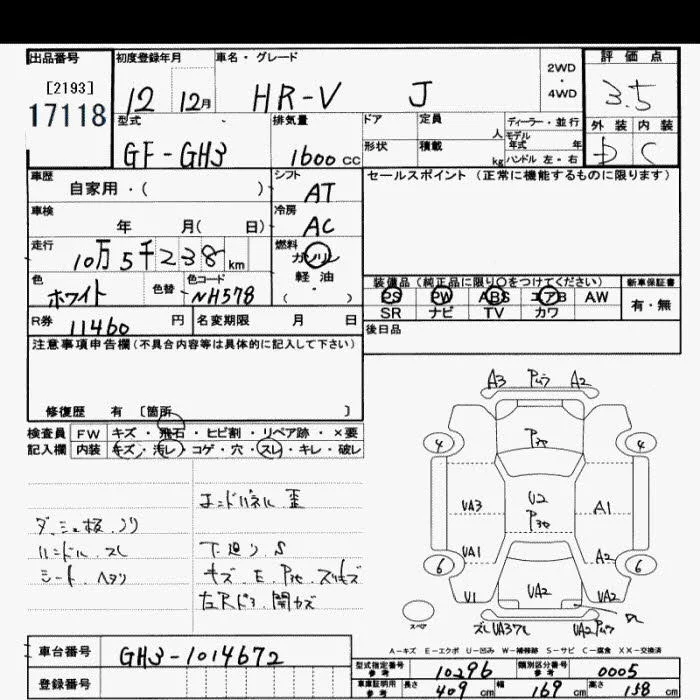 出品番号
[2193]
17118
初度登録年月
12 12月
車名・グレード
HR-V J
2WD
・
4WD
評価点
3.5
外装 内装
D C
型式
GF-GH3
排気量
1600 cc
ドア
定員
人
形状
積載
kg
ディーラー・並行
モデル年式 年
ハンドル 左・右
車歴
自家用・( )
シフト
AT
セールスポイント (正常に機能するものに限ります)
車検
年 月( 日)
冷房
AC
走行
10万5千238 km
燃料
ガソリン
軽・油
( )
色
ホワイト
色替
色コード
NH578
装備品 (純正品に限り○をつけてください)
新車保証書
PS PW ABS エアB AW
SR ナビ TV カワ
有・無
R券
11460 円
名変期限 月 日
後日品
注意事項申告欄 (不具合内容等は具体的に記入して下さい)
修復歴 有 〔箇所 〕
検査員
記入欄
FW キズ・飛石・ヒビ割・リペア跡・×要
内装 キズ・汚レ・コゲ・穴・スレ・キレ・破レ
エンドパネル 歪
ダッシュ板 ノリ
ハンドル スレ
シート ヘタリ
下廻り S
左Rドア 開カズ
A3 A2
4 4
VA3 U2 A1
VA1 A2
6 6
U1 UA2 VA2
スペア
A-キズ E-エクボ U-凹み W-補修跡 S-サビ C-腐食 XX-交換済
車台番号
GH3-1014672
登録番号
型式指定番号
参考
10296
類別区分番号
参考
0005
車庫証明用
参考
長さ 409 cm
幅 169 cm
高さ 158 cm